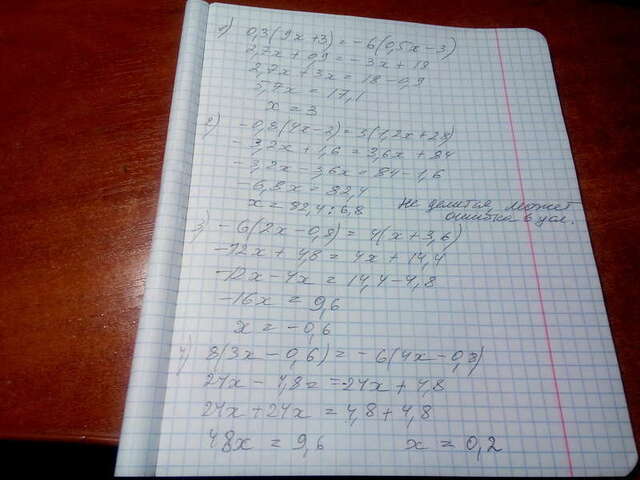 1) 0,3(9x+3) = -6(0,5x-3)
2,7x + 0,9 = -3x + 18
2,7x + 3x = 18 - 0,9
5,7x = 17,1
x = 3
2) -0,8(4x-2) = 3(1,2x+28)
-3,2x + 1,6 = 3,6x + 84
-3,2x - 3,6x = 84 - 1,6
-6,8x = 82,4
x = 82,4 : 6,8 не делится, может
ошибка в усл.
3) -6(2x-0,8) = 4(x+3,6)
-12x + 4,8 = 4x + 14,4
-12x - 4x = 14,4 - 4,8
-16x = 9,6
x = -0,6
4) 8(3x-0,6) = -6(4x-0,8)
24x - 4,8 = -24x + 4,8
24x + 24x = 4,8 + 4,8
48x = 9,6 x = 0,2